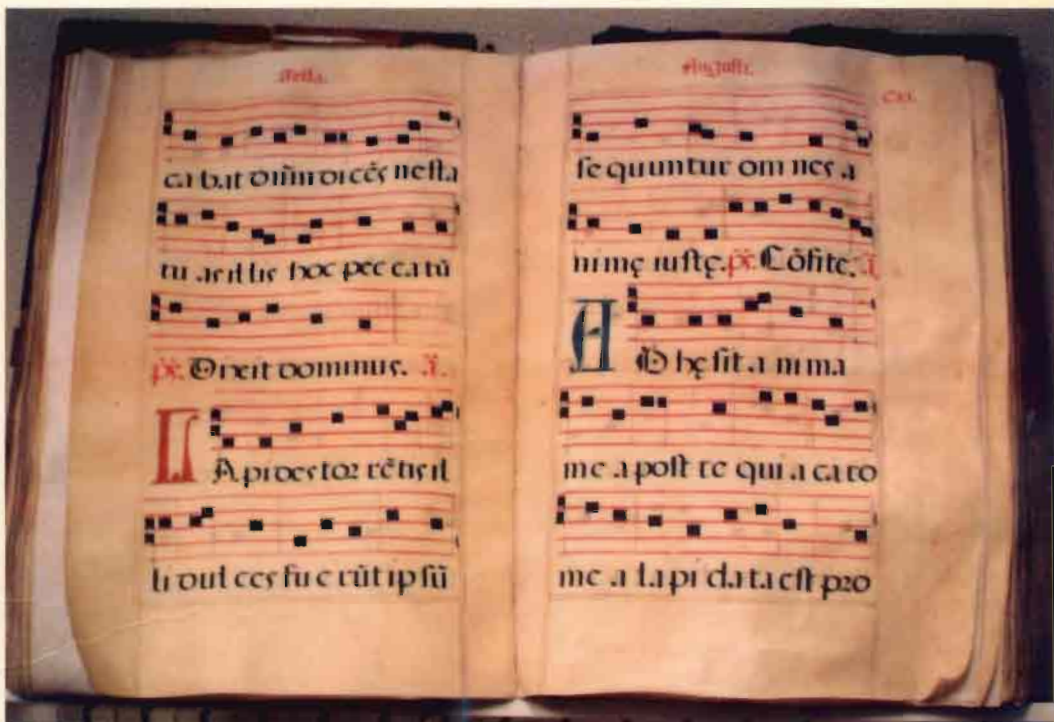 festa.
ca bat dñm di cẽs ne sta
tu as il lis hoc pec ca tũ
p̃s. Dixit dominus. ã.
LA pi des tor rẽ tis il
li dul ces fu e rũt ip sũ
Augusti.
CXI.
se quun tur om nes a
ni mę iustę. p̃s. Cõfite. ã.
AD hę sit a ni ma
me a post te qui a ca ro
me a la pi da ta est pro